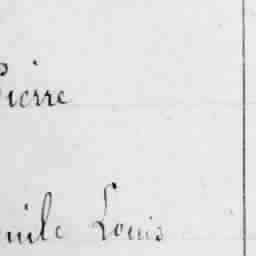 Pierre
Emile Louis